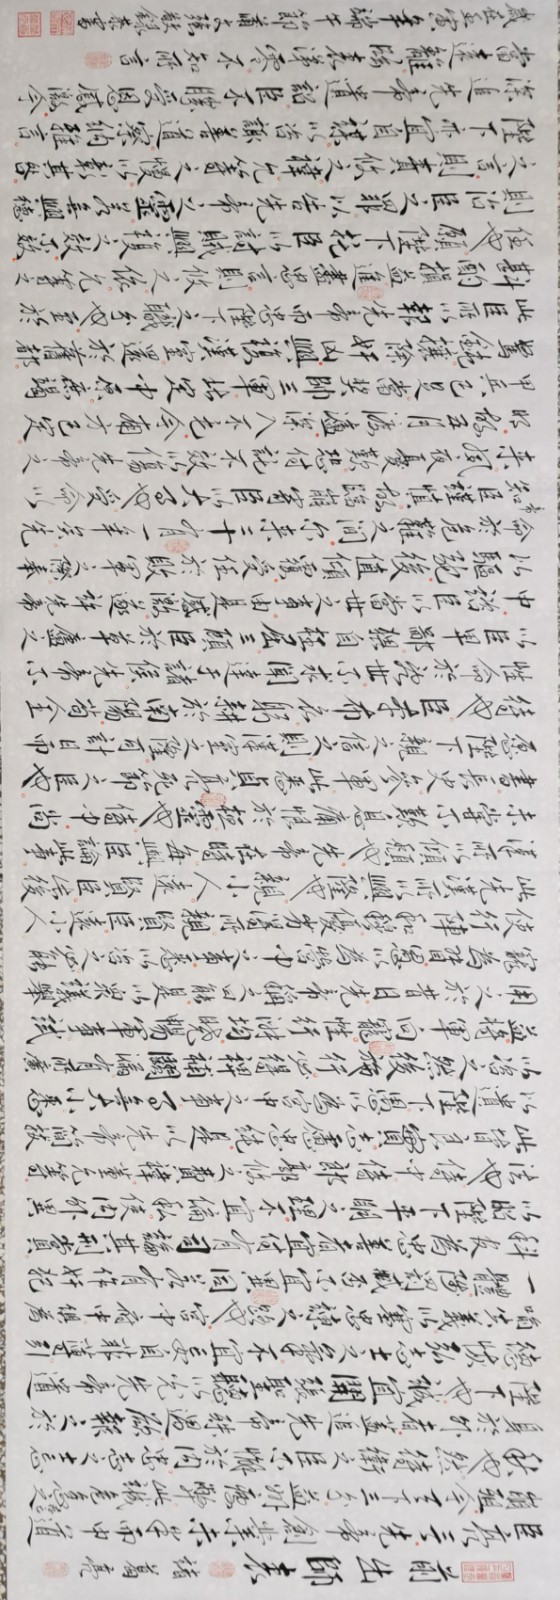 前出師表 諸葛亮
臣亮言先帝創業未半而中道
崩殂今天下三分益州疲弊此誠危急存亡之
秋也然侍衛之臣不懈於內忠志之士忘
身於外者蓋追先帝之殊遇欲報之於
陛下也誠宜開張聖聽以光先帝遺
德恢弘志士之氣不宜妄自菲薄引
喻失義以塞忠諫之路也宮中府中俱為
一體陟罰臧否不宜異同若有作奸犯
科及為忠善者宜付有司論其刑賞
以昭陛下平明之理不宜偏私使內外異
法也侍中侍郎郭攸之費禕董允等
此皆良實志慮忠純是以先帝簡拔
以遺陛下愚以為宮中之事事無大小悉
以咨之然後施行必得裨補闕漏有所廣
益將軍向寵性行淑均曉暢軍事試
用之於昔日先帝稱之曰能是以眾議舉
寵為督愚以為營中之事悉以咨之必能
使行陣和睦優劣得所親賢臣遠小人
此先漢所以興隆也親小人遠賢臣此後
漢所以傾頹也先帝在時每與臣論此事
未嘗不歎息痛恨於桓靈也侍中尚
書長史參軍此悉貞亮死節之臣也
願陛下親之信之則漢室之隆可計日而
待也臣本布衣躬耕於南陽苟全
性命於亂世不求聞達于諸侯先帝不
以臣卑鄙猥自枉屈三顧臣於草廬之
中諮臣以當世之事由是感激遂許先帝
以驅馳後值傾覆受任於敗軍之際奉
命於危難之間爾來二十有一年矣先帝
知臣謹慎故臨崩寄臣以大事也受命以
來夙夜憂歎恐付託不效以傷先帝之
明故五月渡瀘深入不毛今南方已定
甲兵已足當獎帥三軍北定中原庶竭
駑鈍攘除奸凶興復漢室還於舊都
此臣所以報先帝而忠陛下之職分也至於
斟酌損益進盡忠言則攸之禕允等之
任也願陛下託臣以討賊興復之效不效
則治臣之罪以告先帝之靈若無興德
之言則責攸之禕允等之慢以彰其咎
陛下亦宜自謀以諮諏善道察納雅言
深追先帝遺詔臣不勝受恩感激今
當遠離臨表涕零不知所言
歲在壬寅年端午節